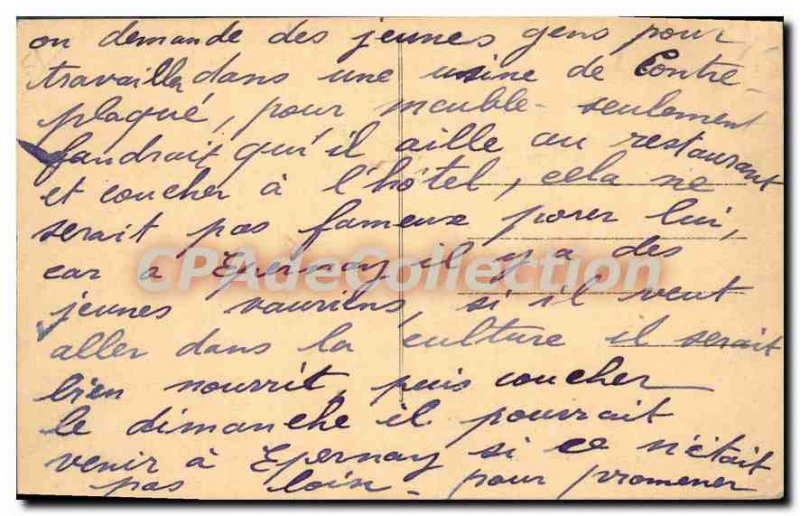 on demande des jeunes gens pour
travailla dans une usine de Contre
plaqué, pour meuble - seulement
faudrait qu'il aille au restaurant
et coucher à l'hôtel, cela ne
serait pas fameux pour lui,
car à Epernay il y a des
jeunes vauriens, si il veut
aller dans la culture il serait
bien nourrit, puis coucher
le dimanche il pourrait
venir à Epernay si ce n'était
pas loin - pour promener
CPAdeCollection